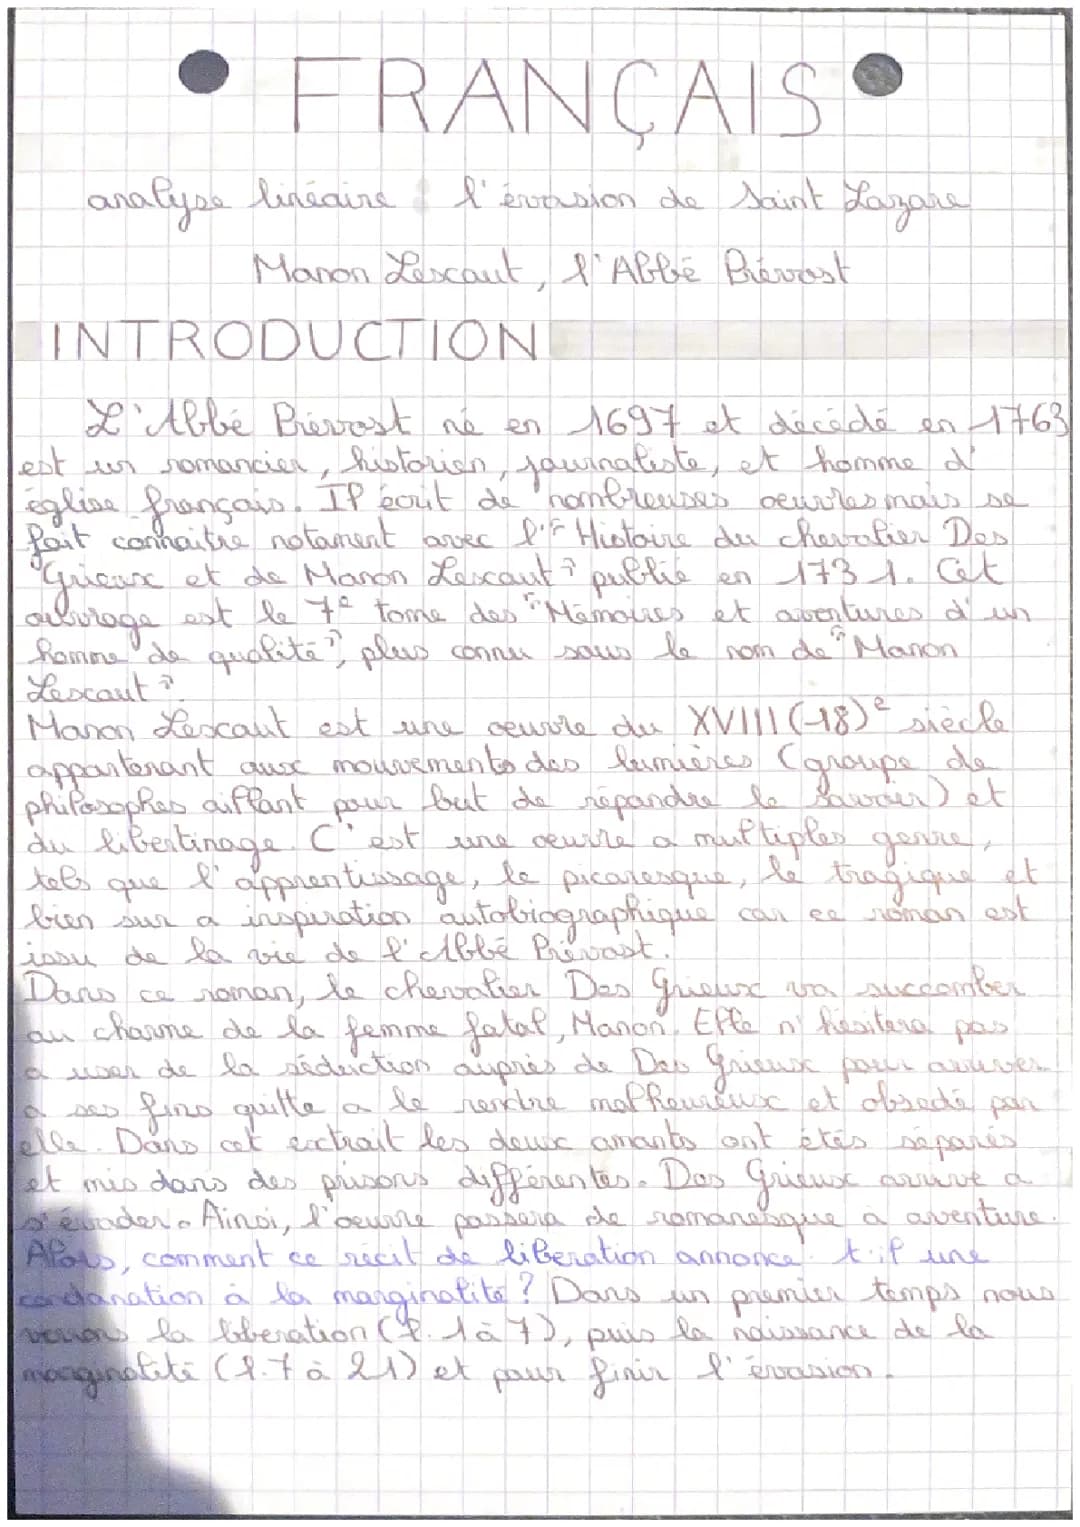 FRANÇAIS
analyse linéaire : l'évasion de Saint Lazare
Manon Lescaut, l'Abbé Prévost
INTRODUCTION
L'Abbé Prévost né en 1697 et décédé en 1763
est un romancier, historien, journaliste, et homme d'
église français. Il écrit de nombreuses oeuvres mais se
fait connaitre notament avec l'" Histoire du chevalier Des
Grieux et de Manon Lescaut" publié en 1731. Cet
ouvrage est le 7e tome des "Mémoires et aventures d'un
homme de qualité", plus connu sous le nom de "Manon
Lescaut".
Manon Lescaut est une oeuvre du XVIII (18)e siècle
appartenant aux mouvements des lumières (groupe de
philosophes aillant pour but de répandre le savoir) et
du libertinage. C'est une oeuvre a multiples genre,
tels que l'apprentissage, le picaresque, le tragique et
bien sur a inspiration autobiographique car ce roman est
issu de la vie de l'Abbé Prévost.
Dans ce roman, le chevalier Des Grieux va succomber
au charme de la femme fatal, Manon. Elle n'hésitera pas
a user de la séduction auprès de Des Grieux pour arriver
a ses fins quitte a le rendre malheureux et obsedé par
elle. Dans cet extrait les deux amants ont étés séparés
et mis dans des prisons différentes. Des Grieux arrive a
s'évader. Ainsi, l'oeuvre passera de romanesque à aventure.
Alors, comment ce récit de libération annonce t-il une
condanation à la marginalité ? Dans un premier temps nous
verrons la libération (l. 1 à 7), puis la naissance de la
marginalité (l. 7 à 21) et pour finir l'évasion.